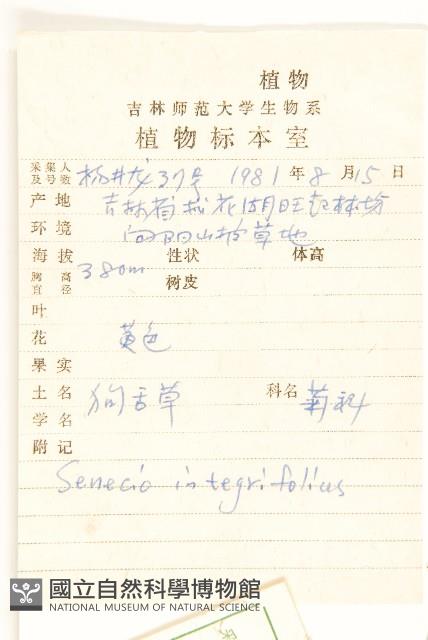 植物
吉林师范大学生物系
植物标本室
采集人及号数 杨井龙37号 1981年8月15日
产地 吉林省松花湖旺起林场
环境 向阳山坡草地
海拔 380m 性状 体高
胸高直径 树皮
叶
花 黄色
果实
土名 狗舌草 科名 菊科
学名
附记
Senecio integrifolius
國立自然科學博物館
NATIONAL MUSEUM OF NATURAL SCIENCE